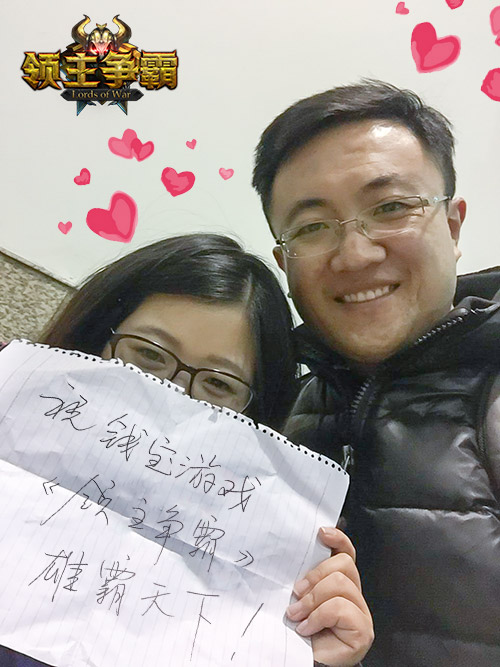 领主争霸
Lords of War
祝钱宝游戏
《领主争霸》
雄霸天下！